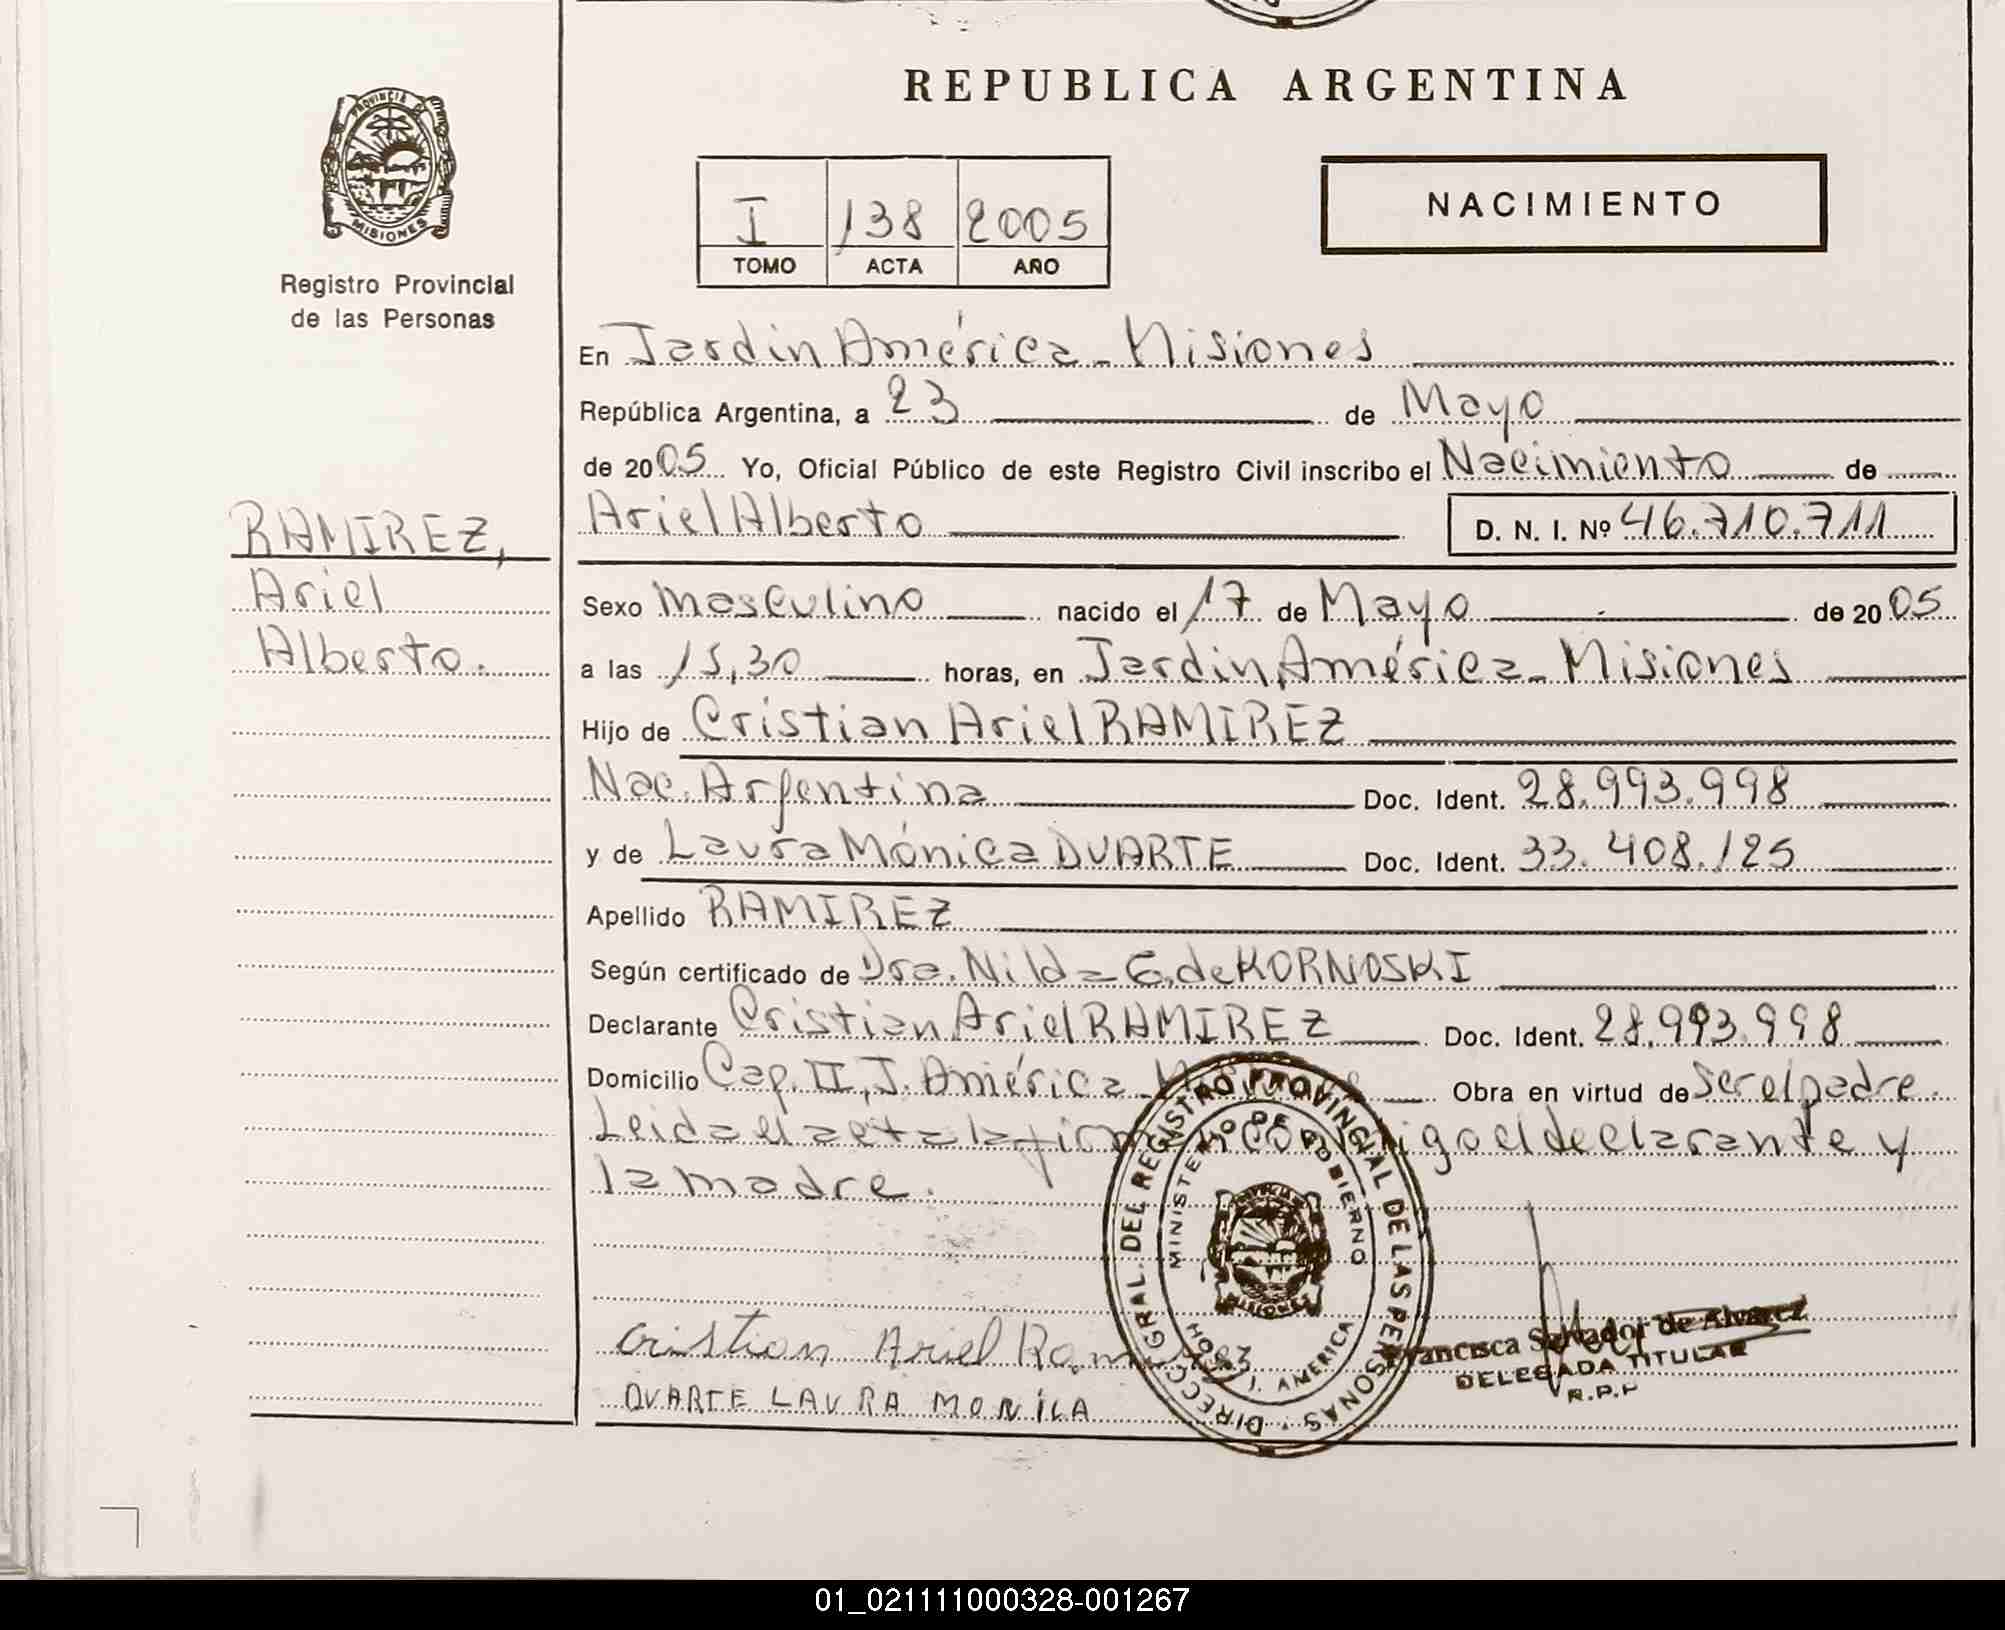 REPUBLICA ARGENTINA
PROVINCIA DE MISIONES
Registro Provincial
de las Personas
I 138 2005
TOMO ACTA AÑO
NACIMIENTO
En Jardin América - Misiones
República Argentina, a 23 de Mayo
de 2005 Yo, Oficial Público de este Registro Civil inscribo el Nacimiento de
Ariel Alberto D. N. I. Nº 46.710.711
RAMIREZ,
Ariel
Alberto.
Sexo Masculino nacido el 17 de Mayo de 2005
a las 15,30 horas, en Jardin América - Misiones
Hijo de Cristian Ariel RAMIREZ
Nac. Argentina Doc. Ident. 28.993.998
y de Laura Mónica DUARTE Doc. Ident. 33.408.125
Apellido RAMIREZ
Según certificado de Dra. Nilda G. de KORNOSKI
Declarante Cristian Ariel RAMIREZ Doc. Ident. 28.993.998
Domicilio Cap. II, J. América - Obra en virtud de ser el padre.
Leida el acta la firma el declarante y
la madre.
DIRECC. GRAL. DEL REGISTRO PROVINCIAL DE LAS PERSONAS
MINISTERIO DE GOBIERNO
MISIONES
J. AMERICA
Cristian Ariel Ram
DUARTE LAURA MONICA
Francisca Salvador de Alvarez
DELEGADA TITULAR
R.P.P
01_021111000328-001267